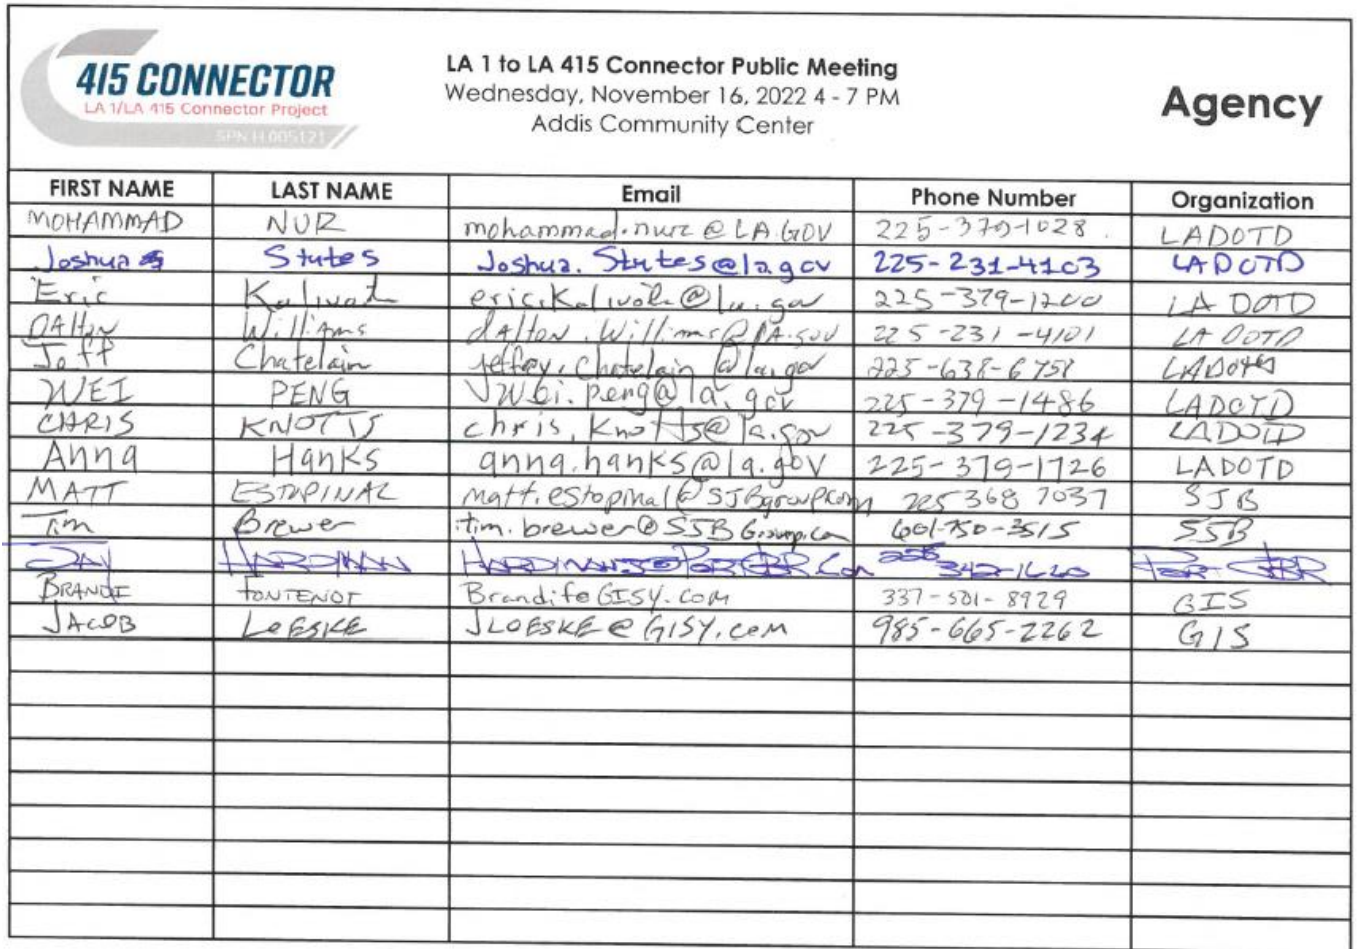 415 CONNECTOR
LA 1/LA 415 Connector Project
SPN H.005121
LA 1 to LA 415 Connector Public Meeting
Wednesday, November 16, 2022 4 - 7 PM
Addis Community Center
Agency
FIRST NAME LAST NAME Email Phone Number Organization
MOHAMMAD NUR mohammad.nur@LA.GOV 225-379-1028 LADOTD
Joshua Stutes Joshua.Stutes@la.gov 225-231-4103 LADOTD
Eric 225-379-1200 LA DOTD
DAlton Williams 225-231-4101 LA DOTD
Jeff Chatelain LADOTD
WEI PENG Wei.peng@la.gov 225-379-1486 LADOTD
CHRIS KNOTTS chris.knotts@la.gov 225-379-1234 LADOTD
Anna Hanks anna.hanks@la.gov 225-379-1726 LADOTD
MATT ESTOPINAL matt.estopinal@SJBgroup.com 225 368 7037 SJB
Tim Brewer tim.brewer@SJBGroup.com 601-750-3515 SJB
JAY HARDMAN 342-1620
BRANDI FONTENOT Brandif@GISY.COM 337-501-8929 GIS
JACOB LOESKE JLOESKE@GISY.COM 985-665-2262 GIS